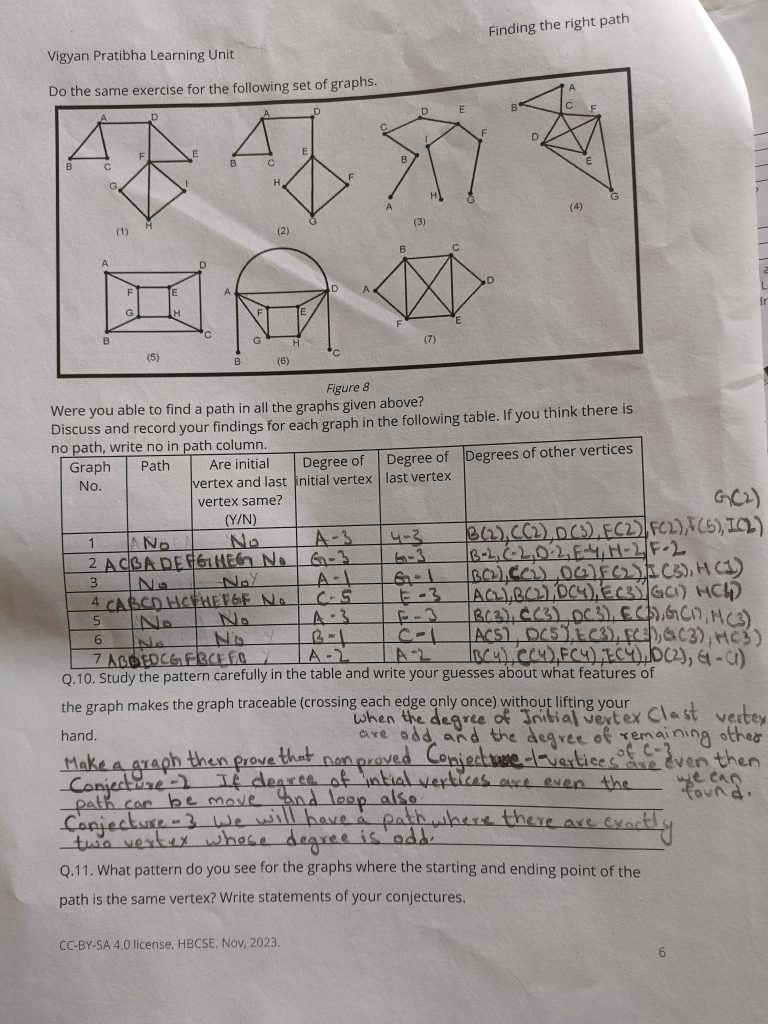 Finding the right path
Vigyan Pratibha Learning Unit
Do the same exercise for the following set of graphs.
A D B C F E G I H (1)
A D B C E H F G (2)
C D E F I B A H G (3)
A B C F D E G (4)
A D F E G H B C (5)
A D F E G H B C (6)
B C A D F E (7)
Figure 8
Were you able to find a path in all the graphs given above?
Discuss and record your findings for each graph in the following table. If you think there is
no path, write no in path column.
Graph No. Path Are initial vertex and last vertex same? (Y/N) Degree of initial vertex Degree of last vertex Degrees of other vertices
G(2)
1 No No A-3 4-3 B(2),C(2),D(3),E(2),F(2),F(5),I(2)
2 ACBADEFGHEG No G-3 G-3 B-2,C-2,D-2,E-4,H-2,F-2
3 No No A-1 G-1 B(2),C(2),D(2),F(2),I(3),H(1)
4 No C-5 E-3 A(2),B(2),D(4),E(3),G(1)
5 No No A-3 F-3 B(3),C(3),D(3),E(3),G(1),H(3)
6 No No B-1 C-1 A(5), D(5),E(3),F(3),G(3),H(3)
7 A-2 A-2 B(4),C(4),F(4),E(4),D(2),G-(1)
Q.10. Study the pattern carefully in the table and write your guesses about what features of
the graph makes the graph traceable (crossing each edge only once) without lifting your
hand.
when the degree of Initial vertex Clast vertex
are odd and the degree of remaining other
vertices are even then
we can
found.
Make a graph then prove that nonproved Conjecture-1 of C-3
Conjecture-2 If degree of intial vertices are even the
path can be move and loop also
Conjecture-3 We will have a path where there are exactly
two vertex whose degree is odd.
Q.11. What pattern do you see for the graphs where the starting and ending point of the
path is the same vertex? Write statements of your conjectures.
CC-BY-SA 4.0 license, HBCSE. Nov, 2023.
6